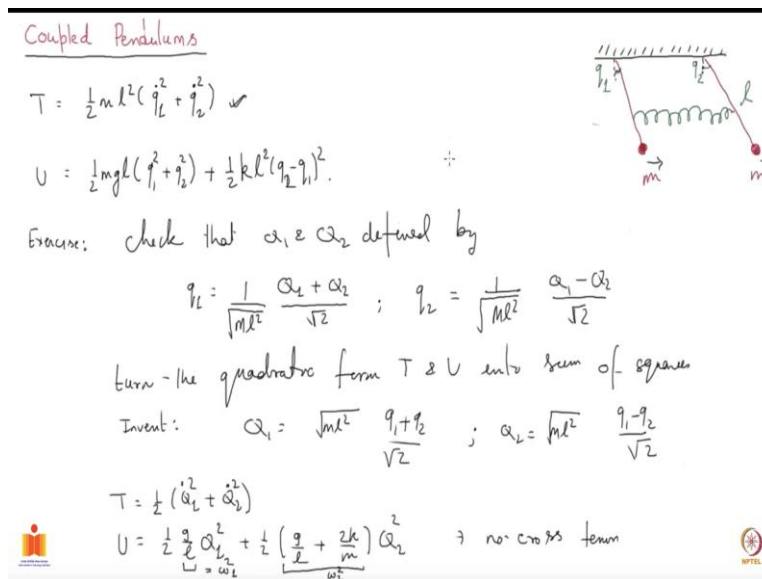 Coupled Pendulums
T = ½ ml² (q̇₁² + q̇₂²) ✓
U = ½ mgl (q₁² + q₂²) + ½ kl² (q₂-q₁)².
q₁ q₂ l
m m
Exercise: check that Q₁ & Q₂ defined by
q₁ = 1/√ml² Q₁ + Q₂/√2 ; q₂ = 1/√ml² Q₁ - Q₂/√2
turn the quadratic form T & U into sum of squares
Invent: Q₁ = √ml² q₁+q₂/√2 ; Q₂ = √ml² q₁-q₂/√2
T = ½ (Q̇₁² + Q̇₂²)
U = ½ g/l Q₁² + ½ (g/l + 2k/m) Q₂² → no cross term
= ω₁² ω₂²
NPTEL